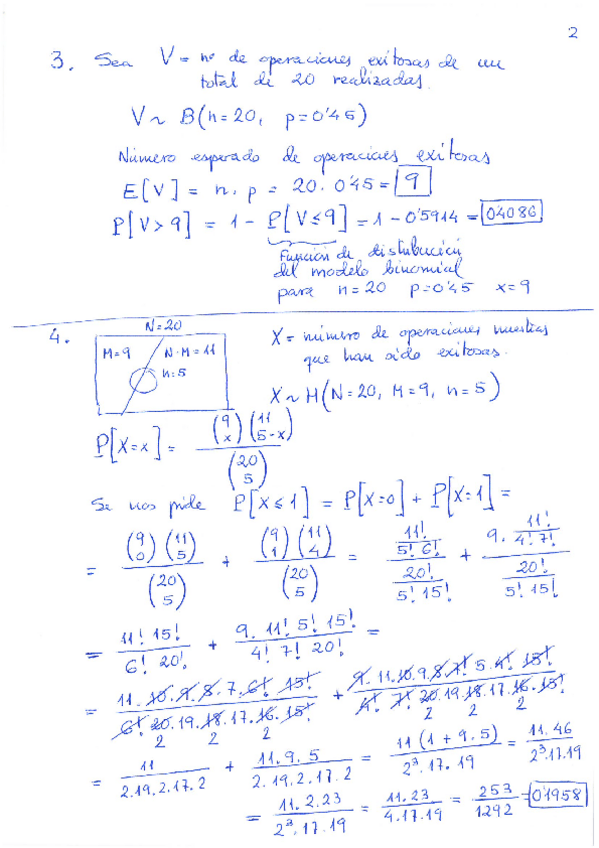 2
3. Sea V = nº de operaciones exitosas de un
total de 20 realizadas.
V ~ B(n=20, p=0'45)
Número esperado de operaciones exitosas
E[V] = n. p = 20. 0'45 = 9
P[V>9] = 1 - P[V≤9] = 1 - 0'5914 = 0'4086
Función de distribución
del modelo binomial
para n=20 p=0'45 x=9
4. N=20
M=9 N-M=11
n=5
X = número de operaciones nuestras
que han sido exitosas.
X ~ H(N=20, M=9, n=5)
P[X=x] = (9 x)(11 5-x) / (20 5)
Se nos pide P[X≤1] = P[X=0] + P[X=1] =
= (9 0)(11 5) / (20 5) + (9 1)(11 4) / (20 5) = (11! / 5! 6!) / (20! / 5! 15!) + (9. 11! / 4! 7!) / (20! / 5! 15!)
= 11! 15! / 6! 20! + 9. 11! 5! 15! / 4! 7! 20! =
= 11. 10. 9. 8. 7. 6! 15! / 6! 20. 19. 18. 17. 16. 15! + 9. 11. 10. 9. 8. 7! 5. 4! 15! / 4! 7! 20. 19. 18. 17. 16. 15!
2 2 2 2 2 2
= 11 / 2. 19. 2. 17. 2 + 11. 9. 5 / 2. 19. 2. 17. 2 = 11 (1 + 9. 5) / 2³. 17. 19 = 11. 46 / 2³. 17. 19
= 11. 2. 23 / 2³. 17. 19 = 11. 23 / 4. 17. 19 = 253 / 1292 = 0'1958